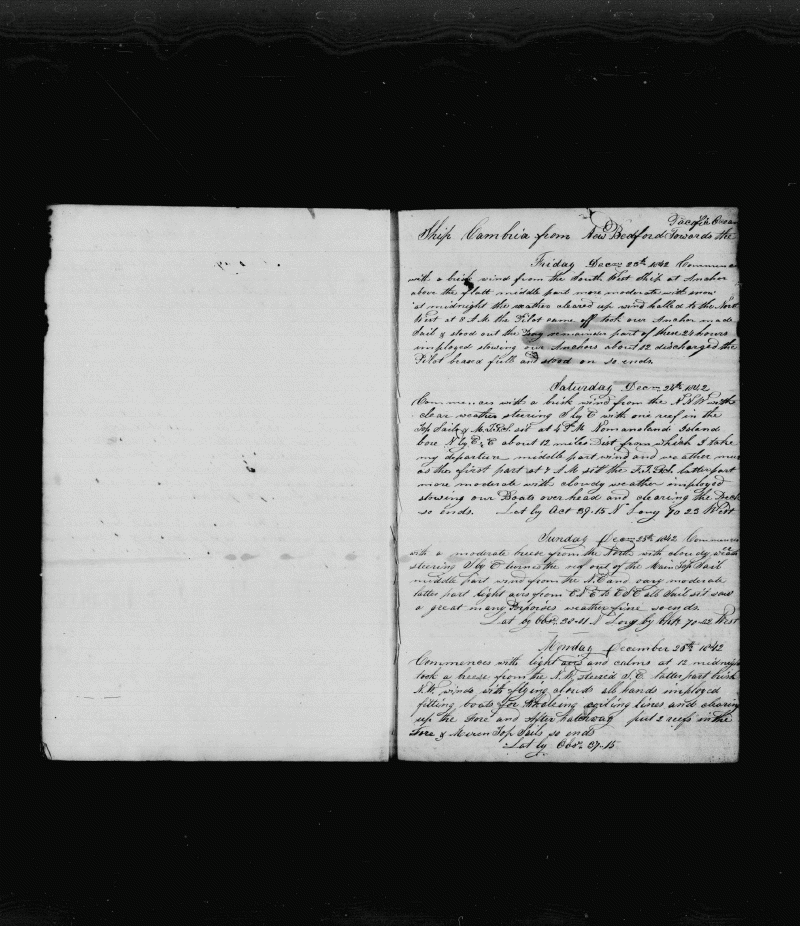 Pacific Ocean
Ship Cambria from New Bedford Towards the
Friday Dec 23th 1842 Commences
with a brisk wind from the South West Ship at Anchor
above the flatt middle part more moderate with snow
at midnight the weather cleared up wind halled to the North
West at 8 A.M the Pilot came off took our Anchor made
Sail & stood out the Bay remainder part of these 24 hours
imployed stowing our Anchors about 12 discharged the
Pilot braced full and stood on so ends
Saturday Dec 24th 1842
Commences with a brisk wind from the N.N.W with
clear weather steering S by E with one reef in the
Top Sails & M.T.G.S. set at 4 P.M Nomansland Island
bore N by E½E about 12 miles Dist from which I take
my departure middle part wind and weather much
as the first part at 7 A.M set the F.T.G.S. latter part
more moderate with cloudy weather imployed
stowing our Boats over head and clearing the Deck
so ends. Lat by Act 39.15 N Long 70 23 West
Sunday Dec 25th 1842 Commences
with a moderate breese from the North with cloudy weath
steering S by E turned the reef out of the Main Top Sail
middle part wind from the N.E and vary moderate
latter part light airs from E.N.E to E.S.E all Sail set saw
a great many Porpoises weather fine so ends
Lat by Obs. 38-11 N Long by Chr 70-22 West
Monday December 26th 1842
Commences with light airs and calms at 12 midnight
took a breese from the N.W steered S.E. latter part brisk
N.W. winds with flying clouds all hands imployed
fitting boats for Whaleing coiling lines and clearing
up the Fore and After hatchway put 2 reefs in the
Fore & Mizen Top Sails so ends
Lat by Obs. 37-15